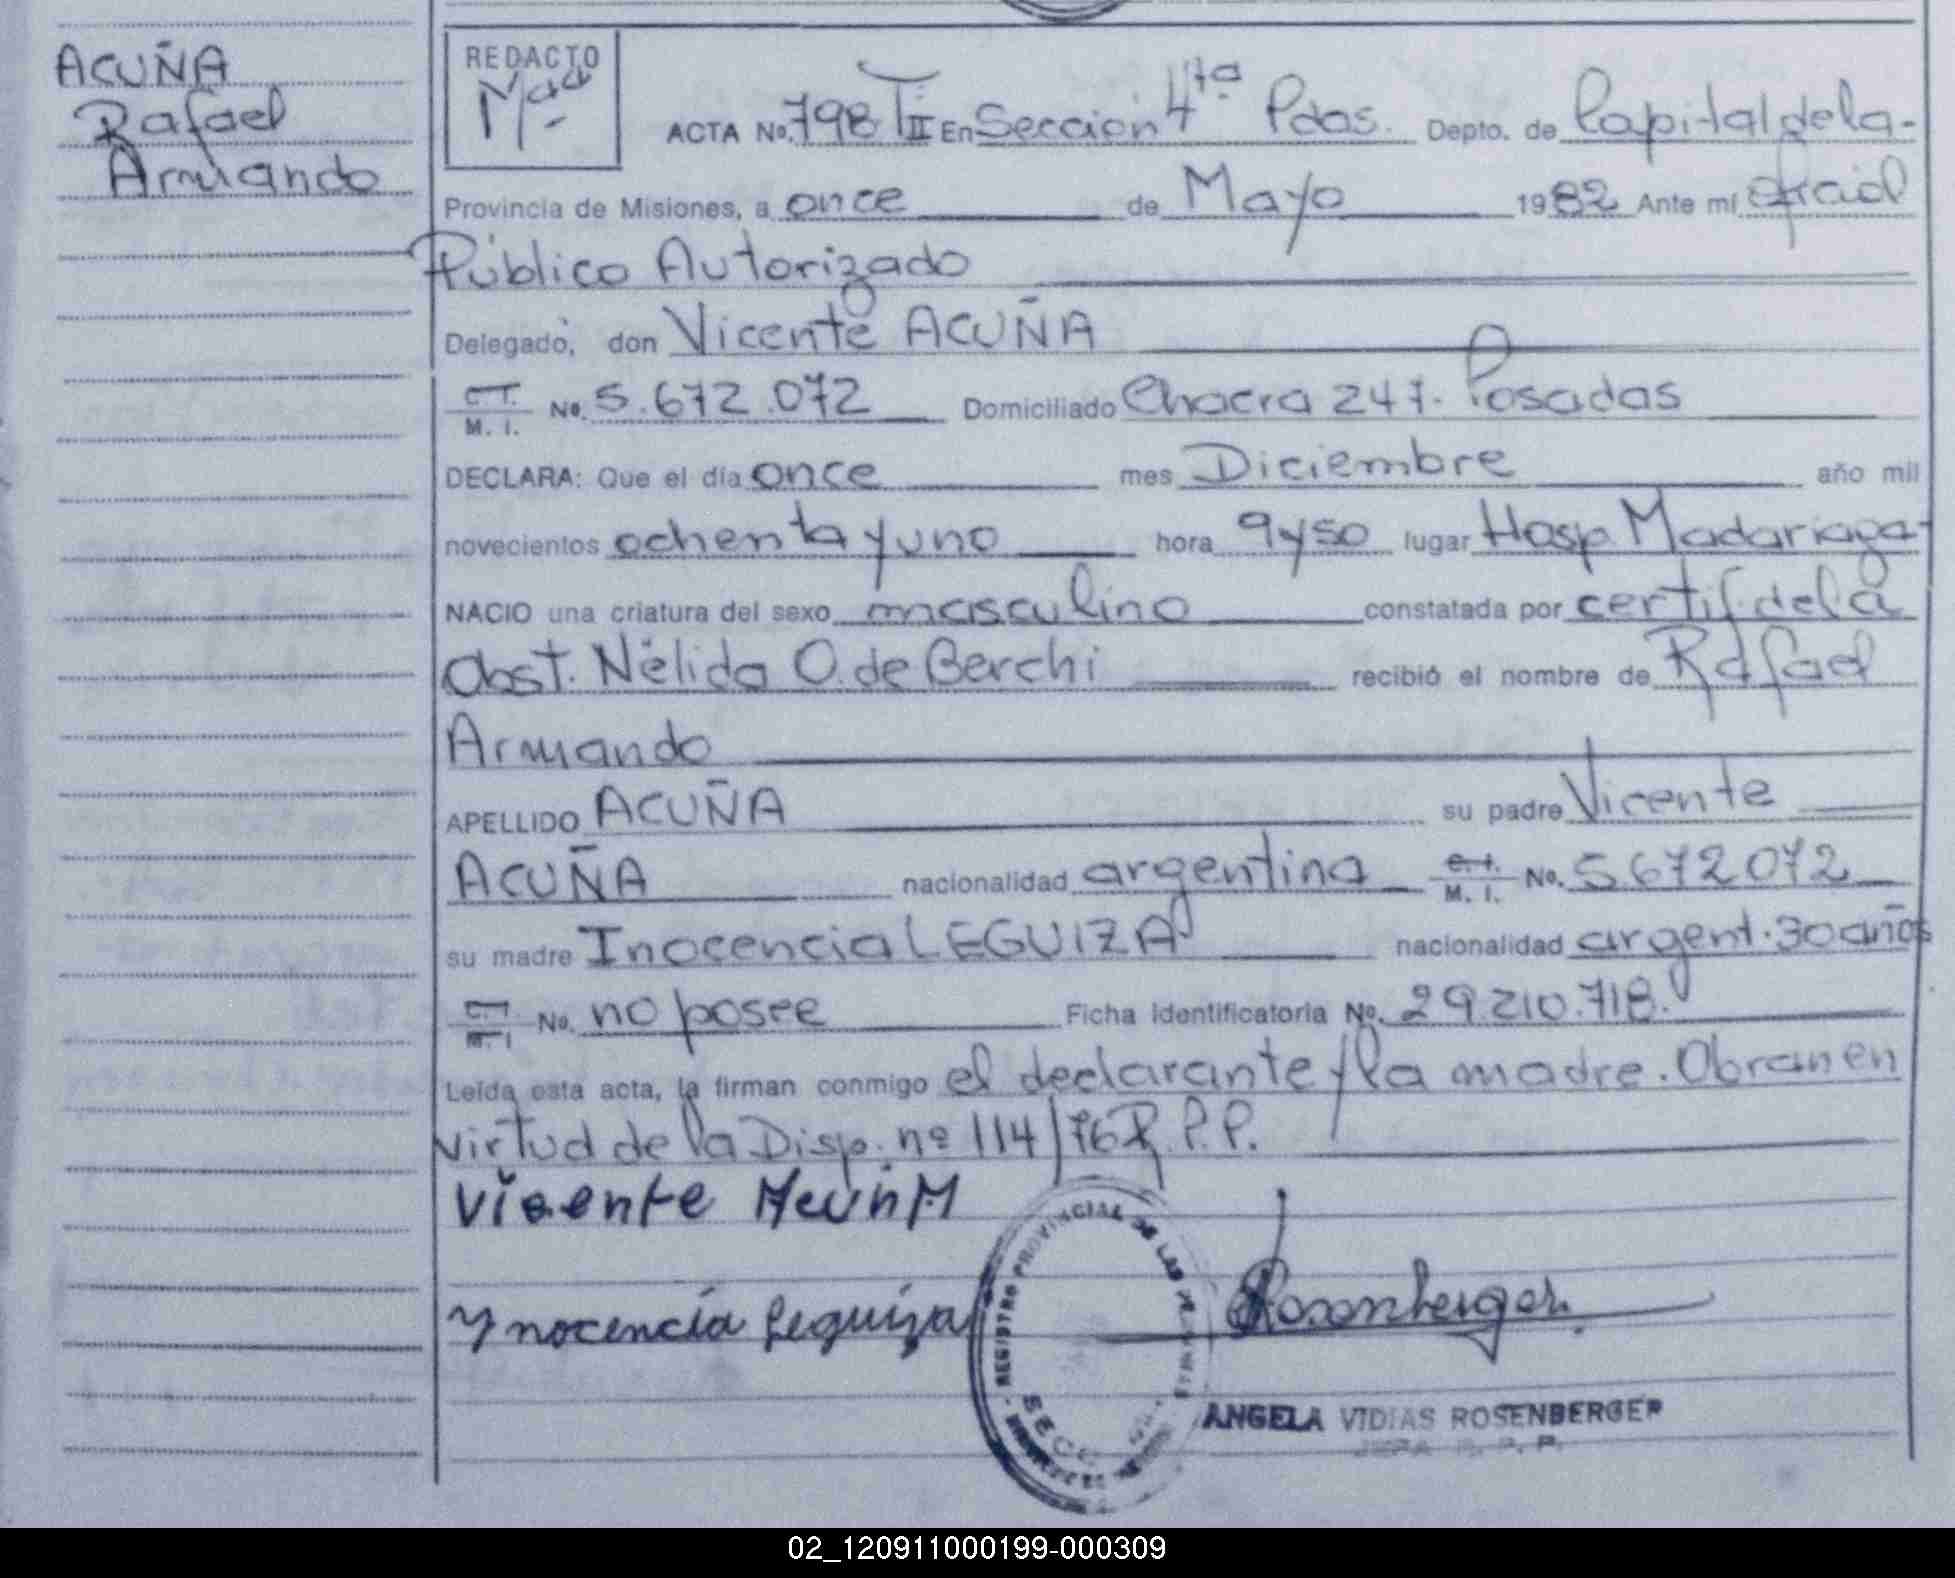 ACUÑA
Rafael
Armando
REDACTO
ACTA No. 798 T II En Sección 4ta Pdas. Depto. de Capital de la-
Provincia de Misiones, a once de Mayo 1982 Ante mí Oficial
Público Autorizado
Delegado, don Vicente ACUÑA
C.I. M. I. No. 5.672.072 Domiciliado Chacra 247. Posadas
DECLARA: Que el día once mes Diciembre año mil
novecientos ochenta y uno hora 9 y 50 lugar Hosp. Madariaga-
NACIO una criatura del sexo masculino constatada por certif. de la
Obst. Nélida O. de Berchi recibió el nombre de Rafael
Armando
APELLIDO ACUÑA su padre Vicente
ACUÑA nacionalidad argentina C.I. M. I. No. 5.672.072
su madre Inocencia LEGUIZA nacionalidad argent. 30 años
C.I. M. I No. no posee Ficha Identificatoria No. 29.210.718.
Leída esta acta, la firman conmigo el declarante y la madre. Obran en
virtud de la Disp. nº 114/76 R.P.P.
Vicente Acuña
Ynocencia Leguiza
Rosenberger
REGISTRO PROVINCIAL DE LAS
SECC
ANGELA VIDIAS ROSENBERGER
JEFA R. P. P.
02_120911000199-000309